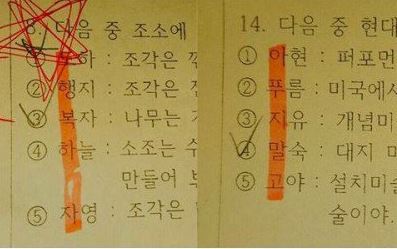 다음 중 조소에
① : 조각은
② 행지 : 조각은
③ 복자 : 나무는
④ 하늘 : 소조는
만들어
⑤ 자영 : 조각은
14. 다음 중 현대
① 아현 : 퍼포먼
② 푸름 : 미국에서
③ 지유 : 개념미
④ 말숙 : 대지
⑤ 고야 : 설치미술
술이야.